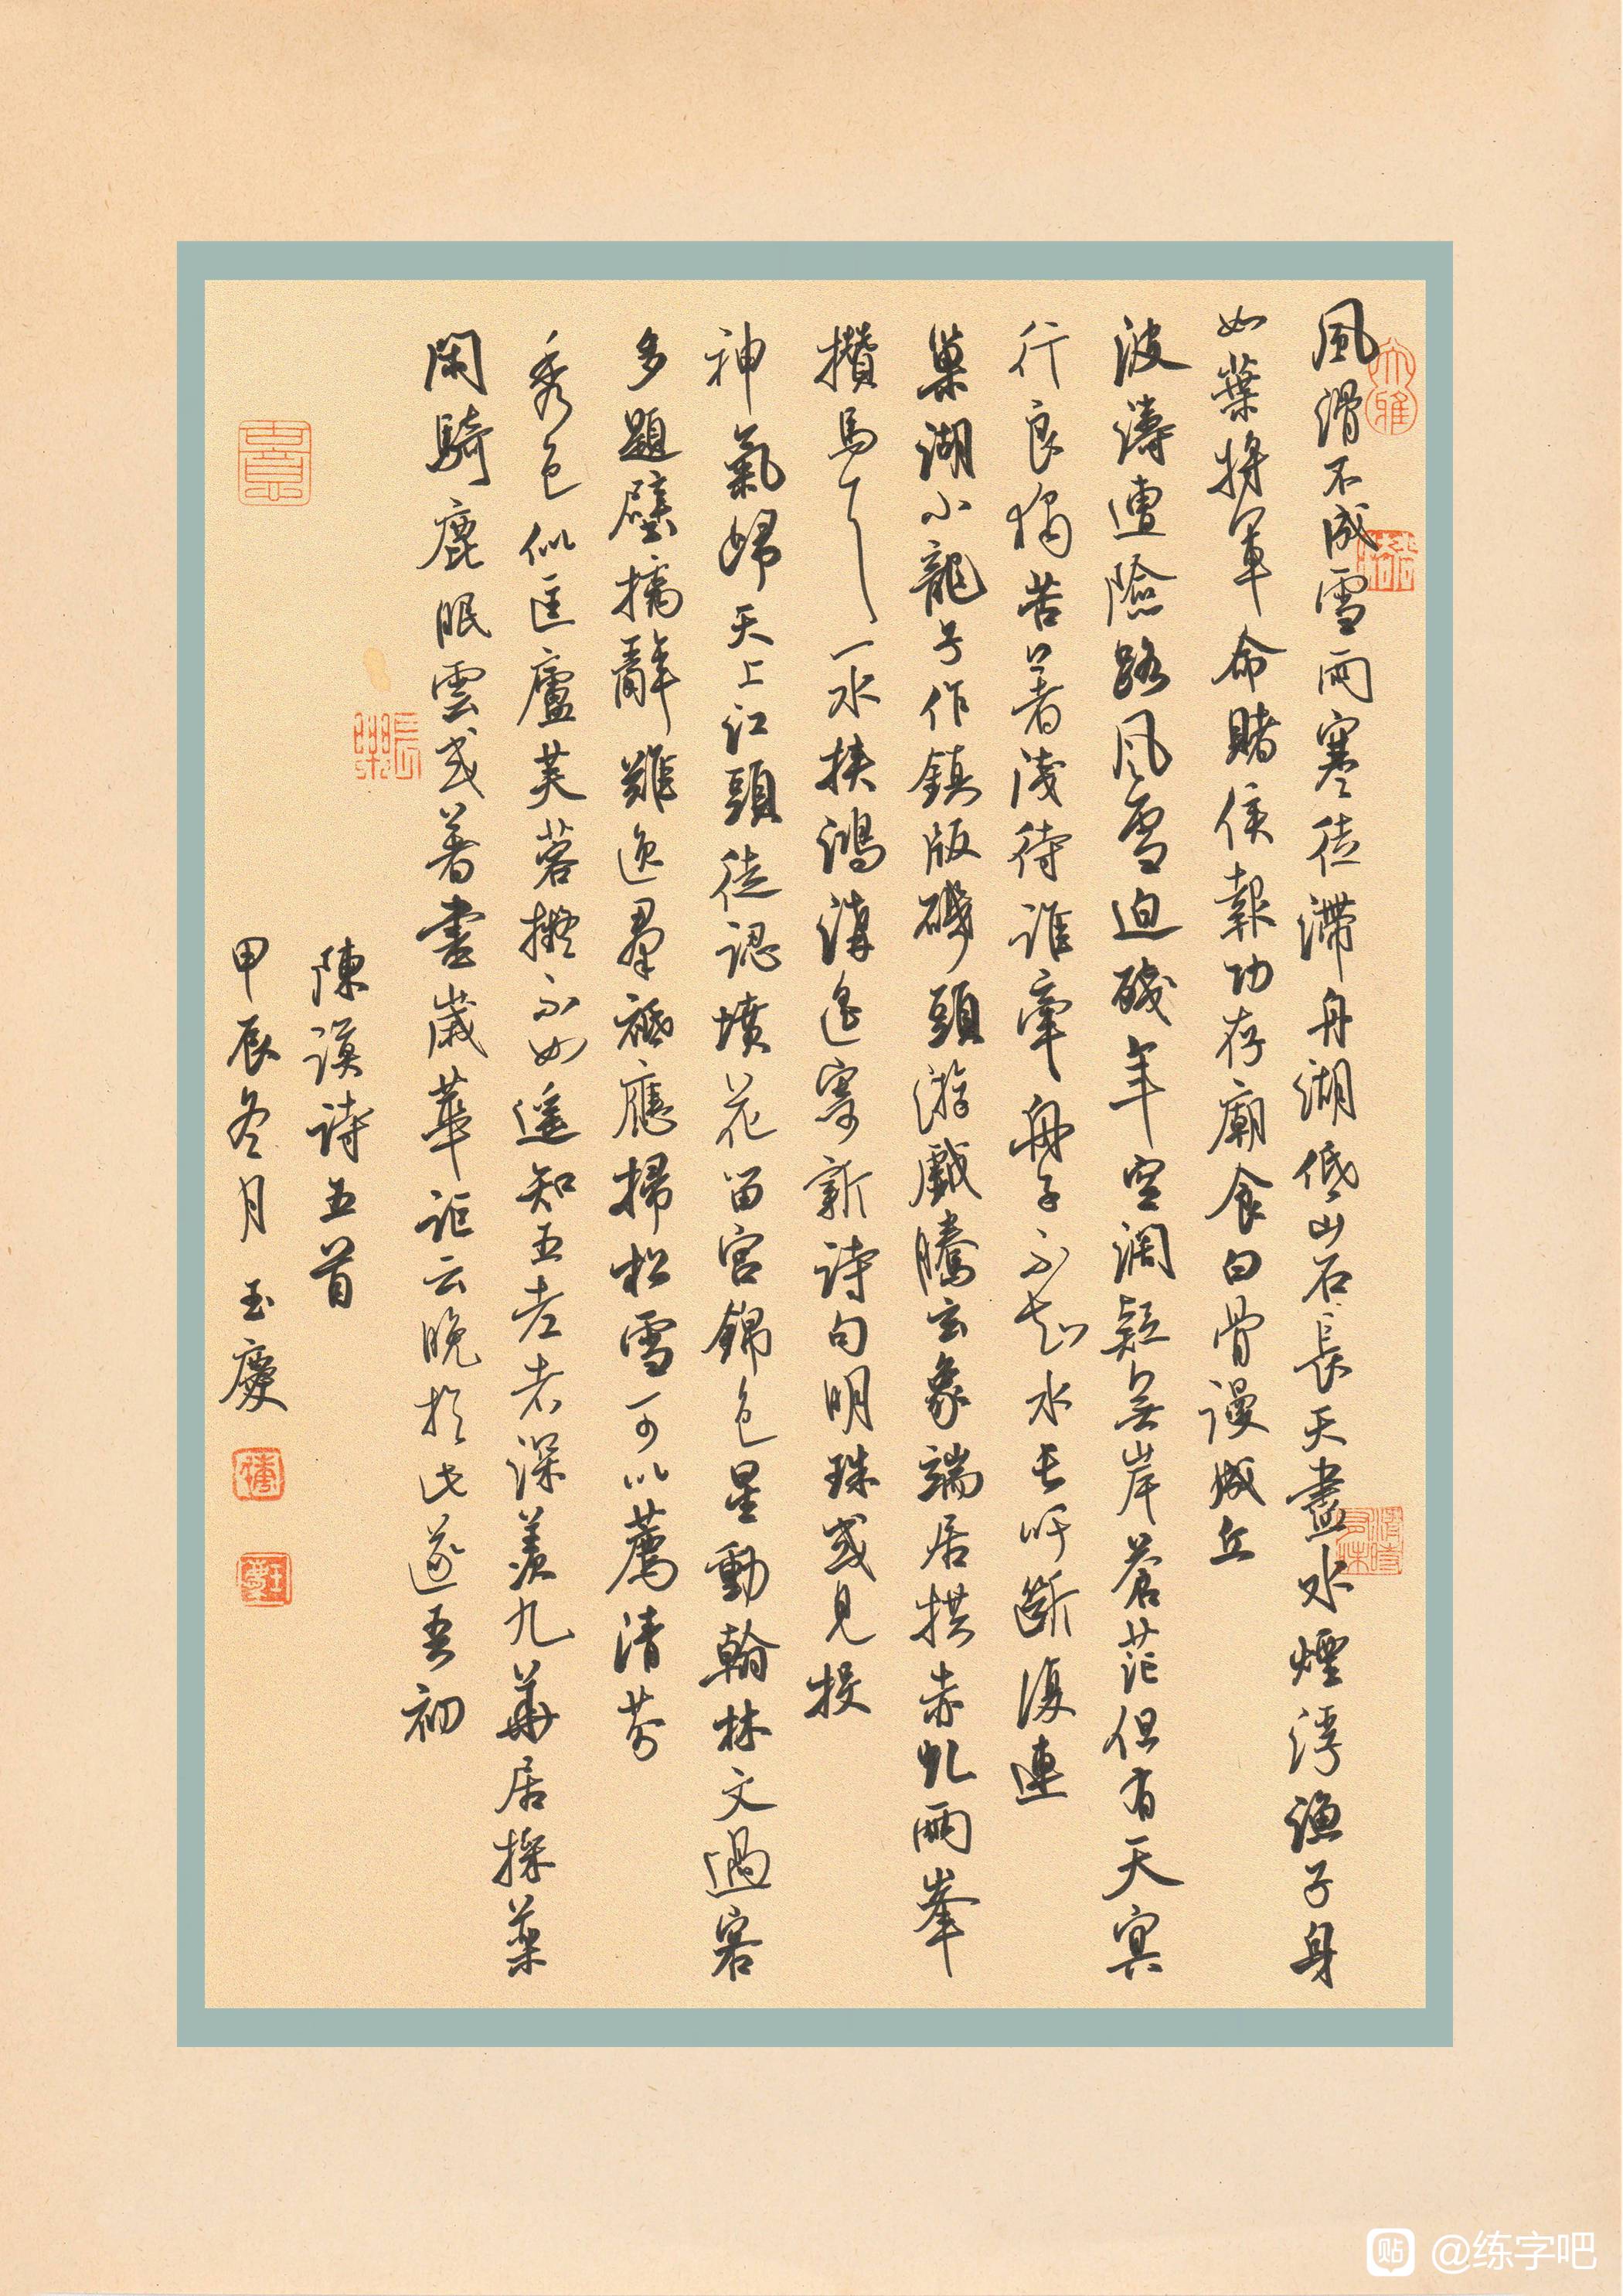 風滑不成雪雨寒徒滯舟湖低山石長天盡水煙浮漁子身
如葉將軍命賭侯報功存廟食白骨漫成丘
波濤連險路風雪迫殘年空闊疑無岸蒼茫但有天冥
行良獨苦著淺待誰牽舟子不知水長吁斷復連
巢湖小龍子作鎮版磯頭游戲騰玄象端居拱赤虬兩峯
攢馬耳一水挾鴻溝遙寄新詩句明珠或見投
神氣歸天上江頭徒認墳花留宮錦色星動翰林文過客
多題壁摛辭難逸羣祇應掃松雪可以薦清芬
秀色似匡廬芙蓉擬不如遥知五老老深羨九華居採藥
閑騎鹿眠雲或著書歲華詎云晚於此遂吾初
陳謨詩五首
甲辰冬月 玉慶
大雅
長樂
@练字吧